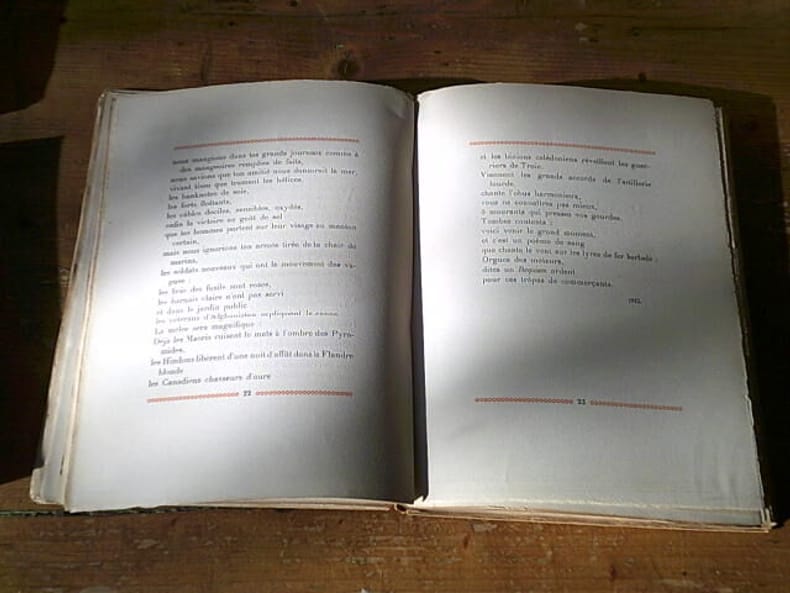 nous mangions dans tes grands journaux comme à
des mangeoires remplies de faits,
nous savions que ton amitié nous donnerait la mer,
vivant élan que trament les hélices.
les banknotes de soie,
les forts flottants,
les câbles dociles, sensibles, oxydés,
enfin la victoire au goût de sel
que les hommes portent sur leur visage au menton
certain,
mais nous ignorions ton armée tirée de la chair de
marins,
les soldats nouveaux qui ont le mouvement des va-
gues :
les bras des fusils sont roses,
les harnais claire n'ont pas servi
et dans le jardin public
les vétérans d'Afghanistan expliquent le canon.
La mêlée sera magnifique :
Déjà les Maoris cuisent le maïs à l'ombre des Pyra-
mides,
les Hindous libèrent d'une nuit d'affût dans la Flandre
blonde
les Canadiens chasseurs d'ours
22
et les clairons calédoniens réveillent les guer-
riers de Troie.
Viennent les grands accords de l'artillerie
lourde,
chante l'obus harmonieux,
vous ne connaîtrez pas mieux,
ô mourants qui pressez vos gourdes.
Tombes contents :
voici venir le grand moment,
et c'est un poème de sang
que chante le vent sur les lyres de fer barbelé :
Orgues des moteurs,
dites un Requiem ardent
pour ces tripes de commerçants.
1915.
23